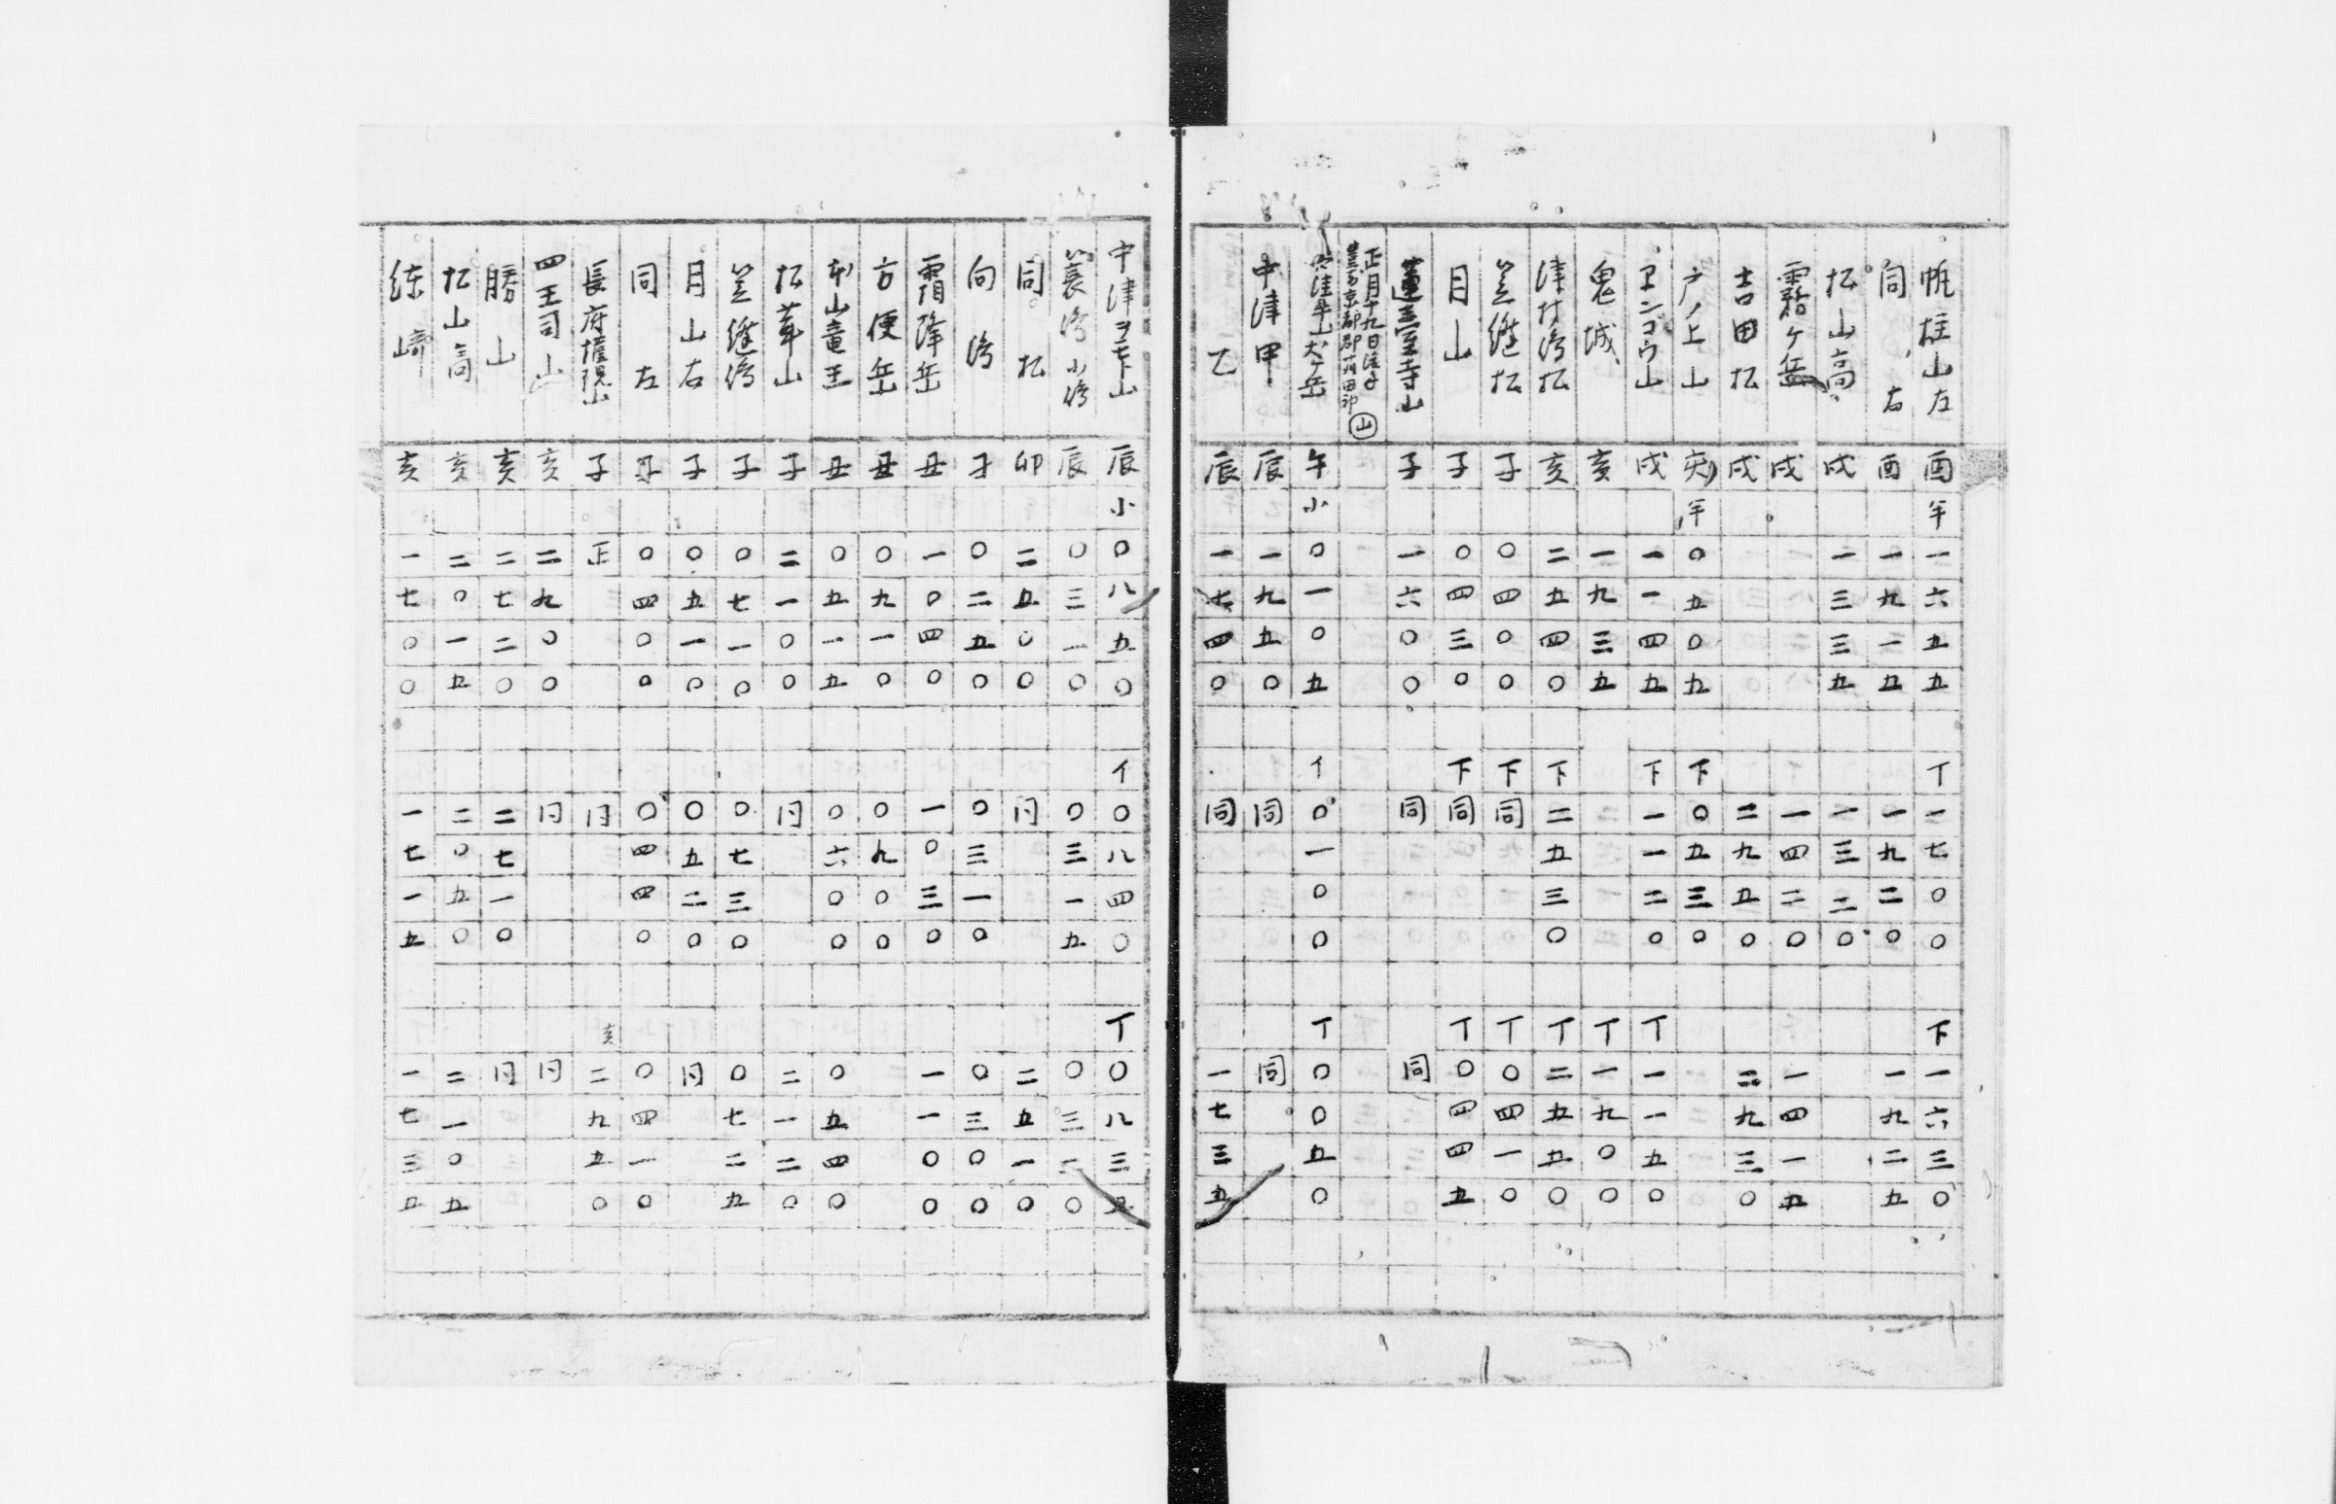 帆柱山左 酉 年 一六五五 丅一七〇〇 下一六三〇
同右 酉 一九一五 一九二〇 一九二五
松山高 戌 一三三五 一三二〇
霜ヶ岳 戌 一四二〇 一四一五
吉田松 戌 二九五〇 二九三〇
戸ノ上山 年 〇五〇五 下〇五三〇
戌 一一四五 下一一二〇 丅一一五〇
鬼城 亥 一九三五 丅一九〇〇
津村湾松 亥 二五四〇 下二五三〇 丅二五五〇
笠継松 子 〇四〇〇 下同 丅〇四一〇
月山 子 〇四三〇 下同 丅〇四四五
子 一六〇〇 同 同
正月十九日
山
午 小 〇一〇五 丅〇一〇〇 丅〇〇五〇
中津甲 辰 一九五〇 同 同
乙 辰 一七四〇 同 一七三五
辰 小 〇八五〇 丅〇八四〇 丅〇八三五
蓑湾小湾 辰 〇三一〇 〇三一五 〇三一〇
同松 卯 二五〇〇 同 二五一〇
向湾 〇二五〇 〇三一〇 〇三〇〇
霜降岳 丑 一〇四〇 一〇三〇 一一〇〇
方便岳 丑 〇九一〇 〇九〇〇
本山竜王 丑 〇五一五 〇六〇〇 〇五四〇
松茸山 子 二一〇〇 同 二一二〇
笠継湾 子 〇七一〇 〇七三〇 〇七二五
月山右 子 〇五一〇 〇五二〇 同
同左 子 〇四〇〇 〇四四〇 〇四一〇
長府 子 正 同 亥二九五〇
四王司山 亥 二九〇〇 同 同
勝山 亥 二七二〇 二七一〇 同
松山高 亥 二〇一五 二〇五〇 二一〇五
亥 一七〇〇 一七一五 一七三五